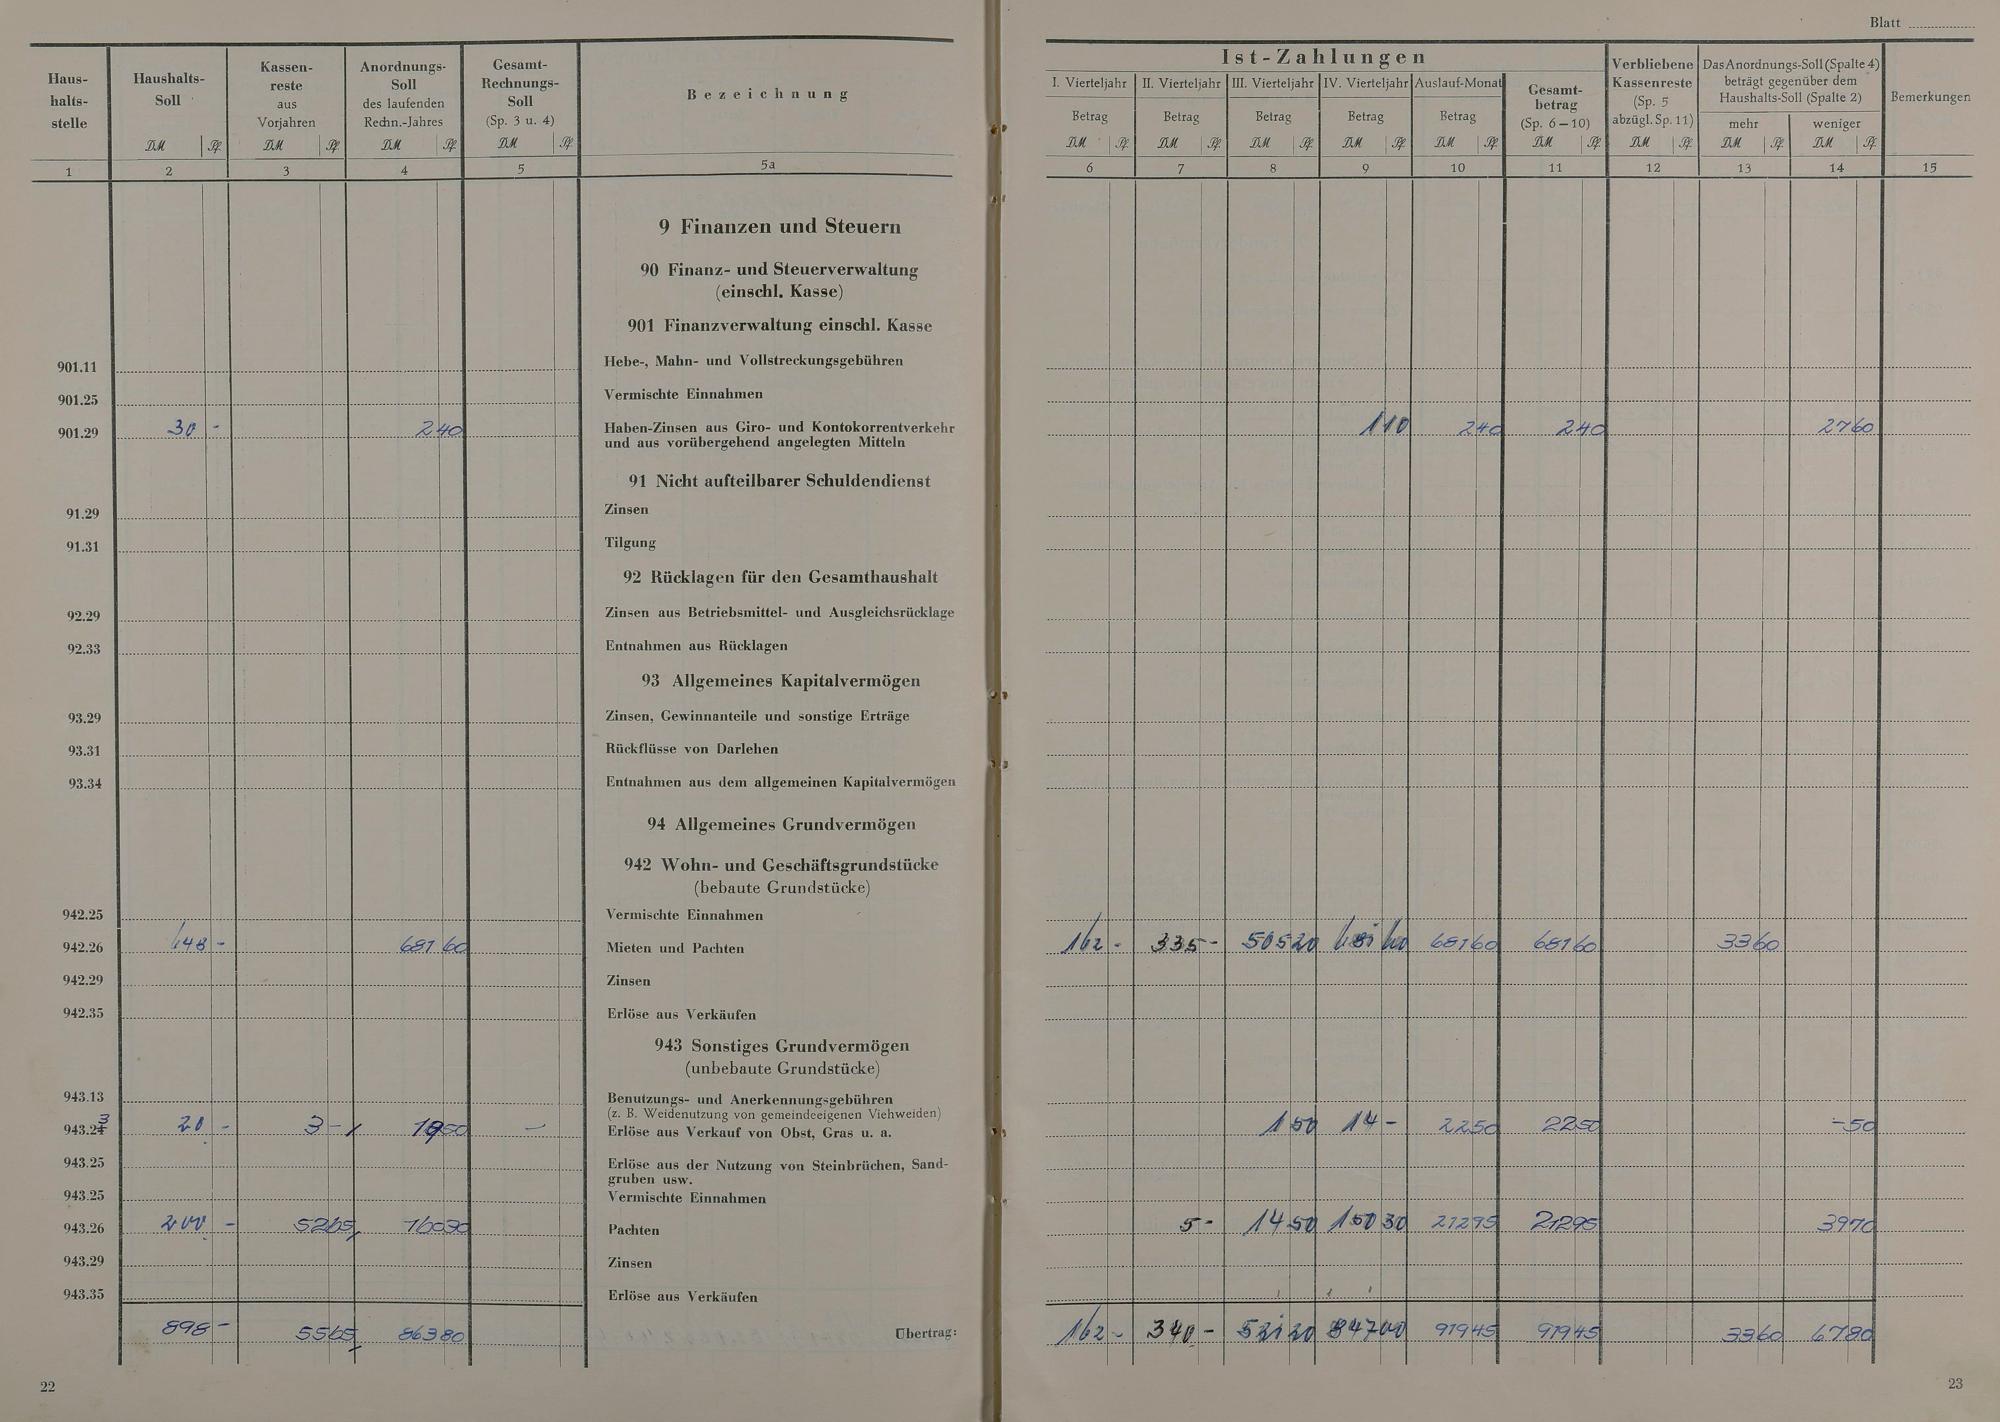 Blatt
Haus-
halts-
stelle
Haushalts-
Soll
DM Pf
Kassen-
reste
aus
Vorjahren
DM Pf
Anordnungs-
Soll
des laufenden
Rechn.-Jahres
DM Pf
Gesamt-
Rechnungs-
Soll
(Sp. 3 u. 4)
DM Pf
Bezeichnung
Ist-Zahlungen
I. Vierteljahr II. Vierteljahr III. Vierteljahr IV. Vierteljahr Auslauf-Monat
Betrag Betrag Betrag Betrag Betrag
DM Pf DM Pf DM Pf DM Pf DM Pf
Gesamt-
betrag
(Sp. 6–10)
DM Pf
Verbliebene
Kassenreste
(Sp. 5
abzügl. Sp. 11)
DM Pf
Das Anordnungs-Soll (Spalte 4)
beträgt gegenüber dem
Haushalts-Soll (Spalte 2)
mehr weniger
DM Pf DM Pf
Bemerkungen
1 2 3 4 5 5a 6 7 8 9 10 11 12 13 14 15
9 Finanzen und Steuern
90 Finanz- und Steuerverwaltung
(einschl. Kasse)
901 Finanzverwaltung einschl. Kasse
901.11 Hebe-, Mahn- und Vollstreckungsgebühren
901.25 Vermischte Einnahmen
901.29 30 - 240 Haben-Zinsen aus Giro- und Kontokorrentverkehr 110 240 240 2760
und aus vorübergehend angelegten Mitteln
91 Nicht aufteilbarer Schuldendienst
91.29 Zinsen
91.31 Tilgung
92 Rücklagen für den Gesamthaushalt
92.29 Zinsen aus Betriebsmittel- und Ausgleichsrücklage
92.33 Entnahmen aus Rücklagen
93 Allgemeines Kapitalvermögen
93.29 Zinsen, Gewinnanteile und sonstige Erträge
93.31 Rückflüsse von Darlehen
93.34 Entnahmen aus dem allgemeinen Kapitalvermögen
94 Allgemeines Grundvermögen
942 Wohn- und Geschäftsgrundstücke
(bebaute Grundstücke)
942.25 Vermischte Einnahmen
942.26 648 - 681 60 Mieten und Pachten 162 - 335 - 505 20 681 60 681 60 33 60
942.29 Zinsen
942.35 Erlöse aus Verkäufen
943 Sonstiges Grundvermögen
(unbebaute Grundstücke)
943.13 Benutzungs- und Anerkennungsgebühren
(z. B. Weidenutzung von gemeindeeigenen Viehweiden)
943.23 20 - 3 - 19 50 - Erlöse aus Verkauf von Obst, Gras u. a. 1 50 14 - 22 50 22 50 - 50
943.25 Erlöse aus der Nutzung von Steinbrüchen, Sand-
gruben usw.
943.25 Vermischte Einnahmen
943.26 200 - 52 65 160 30 Pachten 5 - 14 50 150 30 212 95 212 95 39 70
943.29 Zinsen
943.35 Erlöse aus Verkäufen
898 - 55 65 863 80 Übertrag: 162 - 340 - 521 20 847 00 919 45 919 45 33 60 67 80
22
23